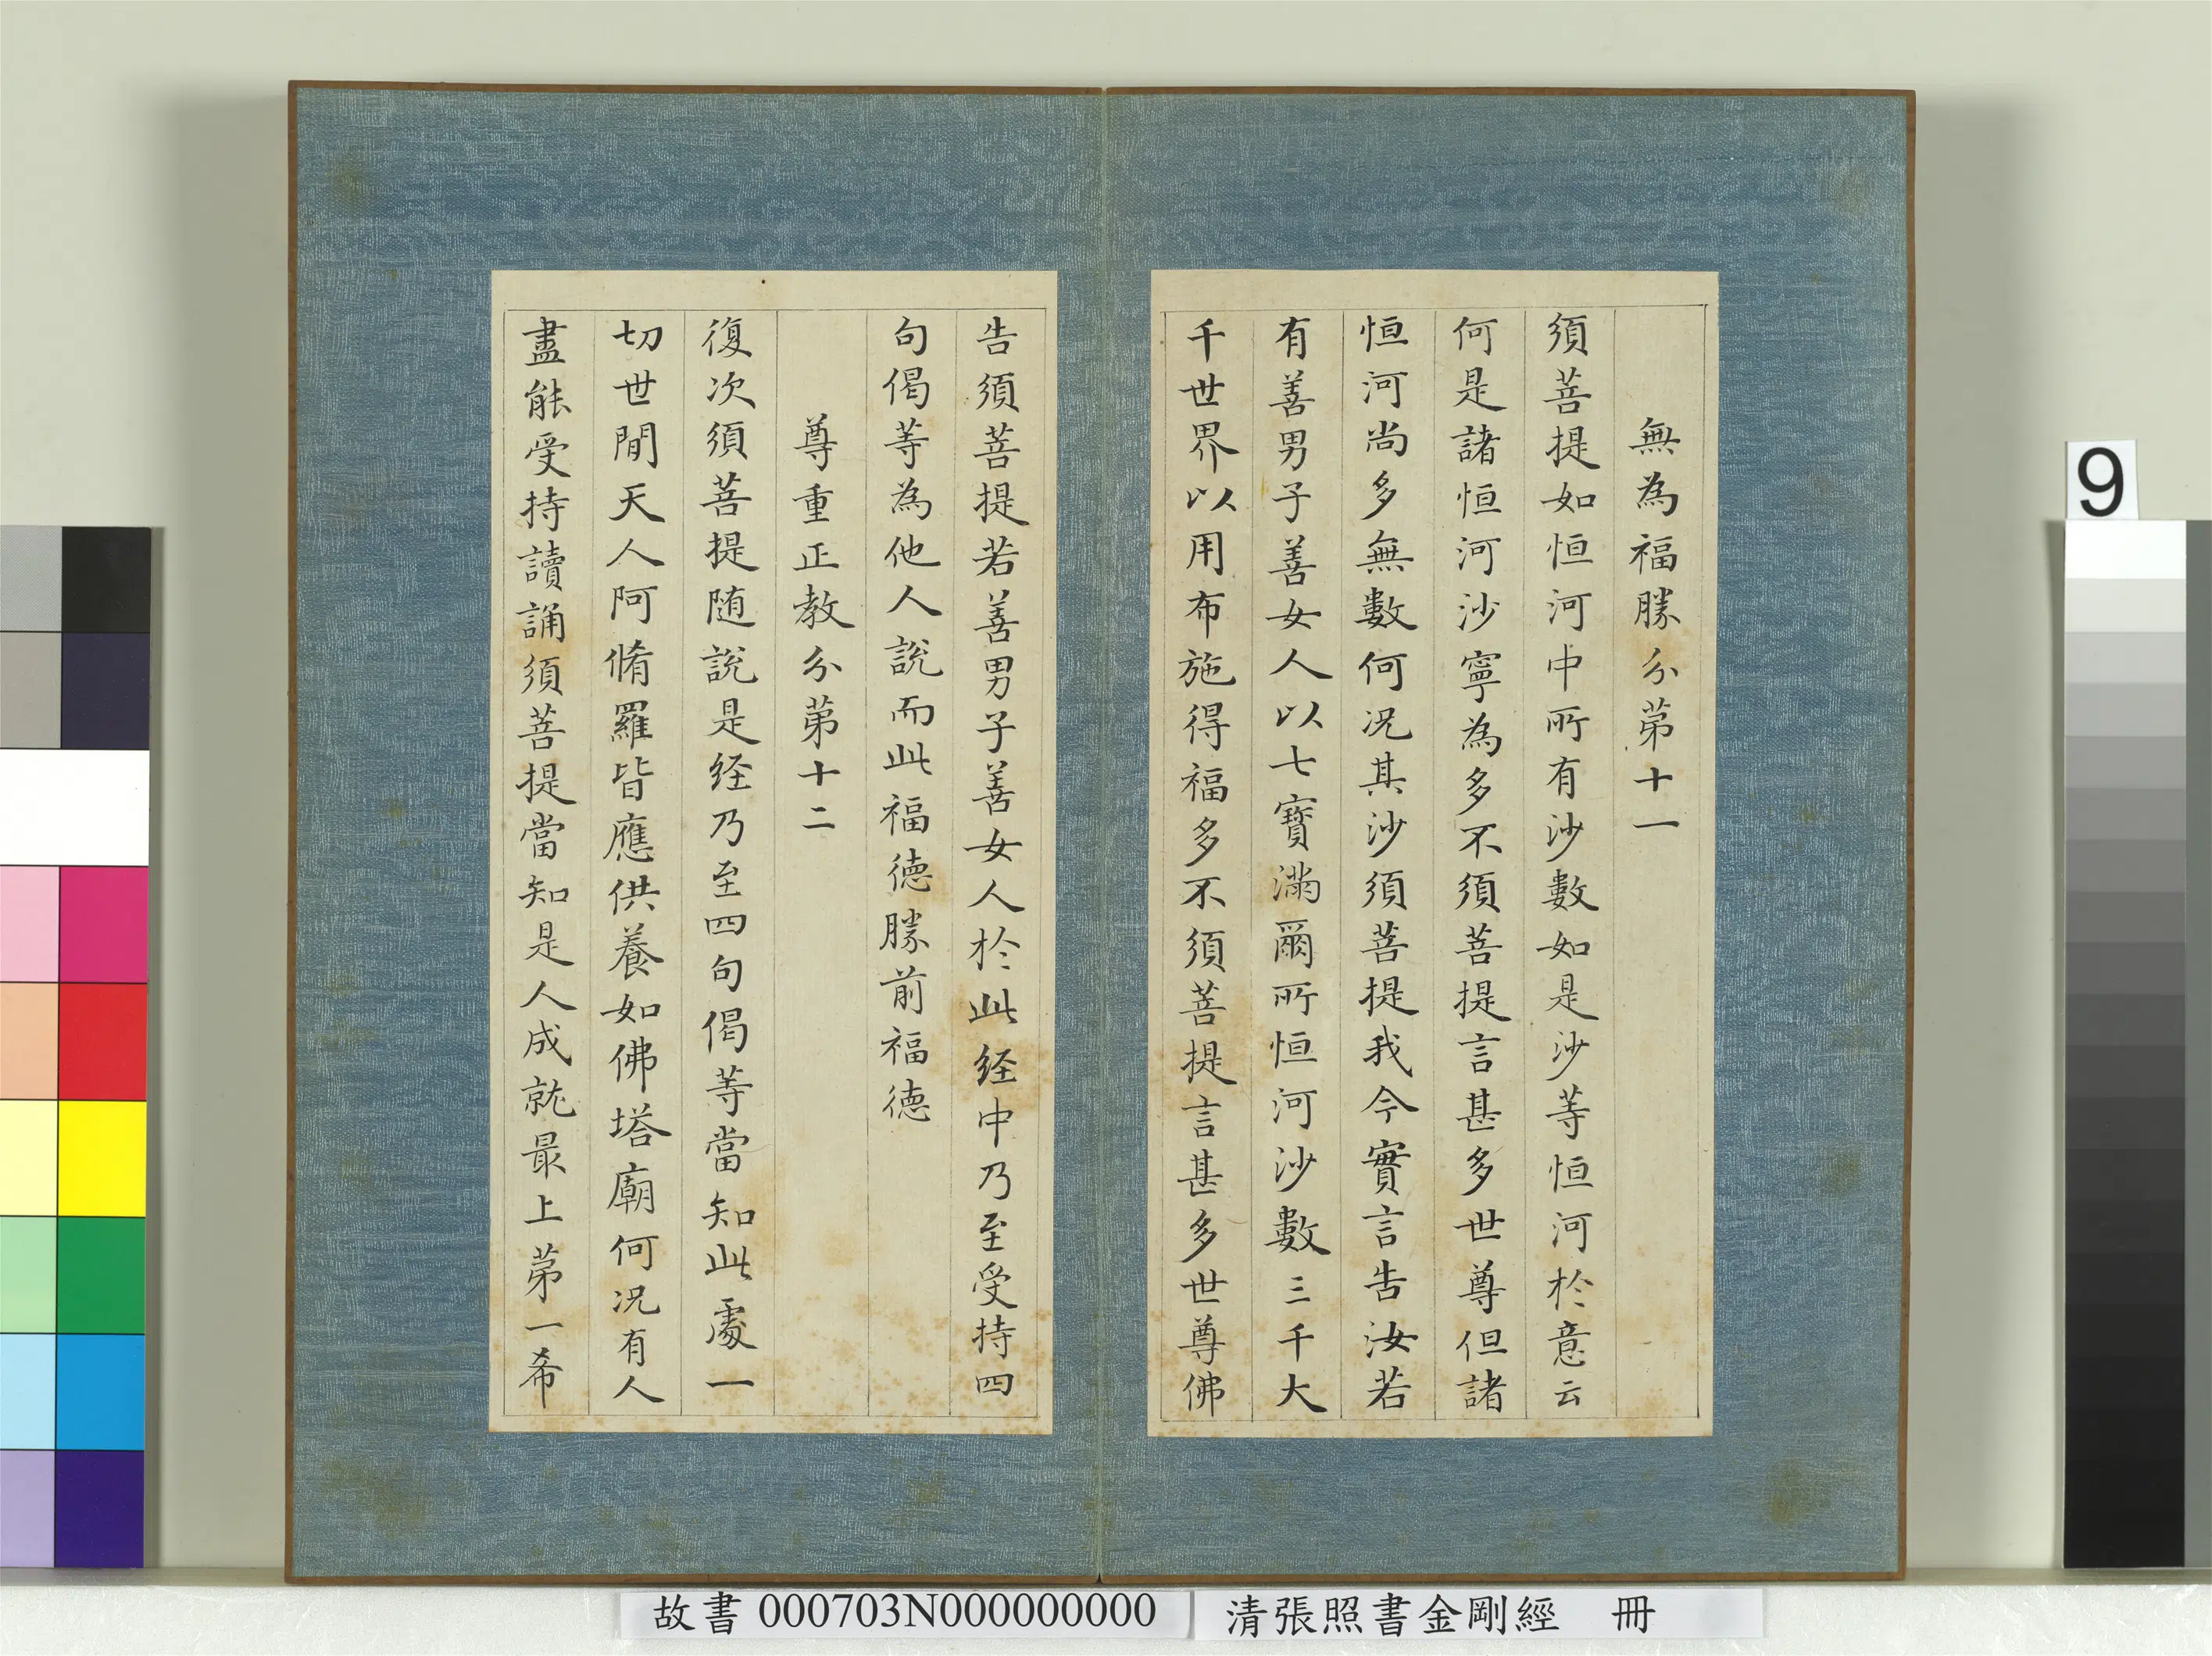 無為福勝分苐十一
須菩提如恒河中所有沙數如是沙等恒河於意云
何是諸恒河沙寧為多不須菩提言甚多世尊但諸
恒河尚多無數何况其沙須菩提我今實言告汝若
有善男子善女人以七寶滿爾所恒河沙數三千大
千世界以用布施得福多不須菩提言甚多世尊佛
告須菩提若善男子善女人於此経中乃至受持四
句偈等為他人說而此福德勝前福德
尊重正教分苐十二
復次須菩提随說是経乃至四句偈等當知此處一
切世間天人阿脩羅皆應供養如佛塔廟何况有人
盡能受持讀誦須菩提當知是人成就最上苐一希
9
故書 000703N000000000
清張照書金剛經 冊